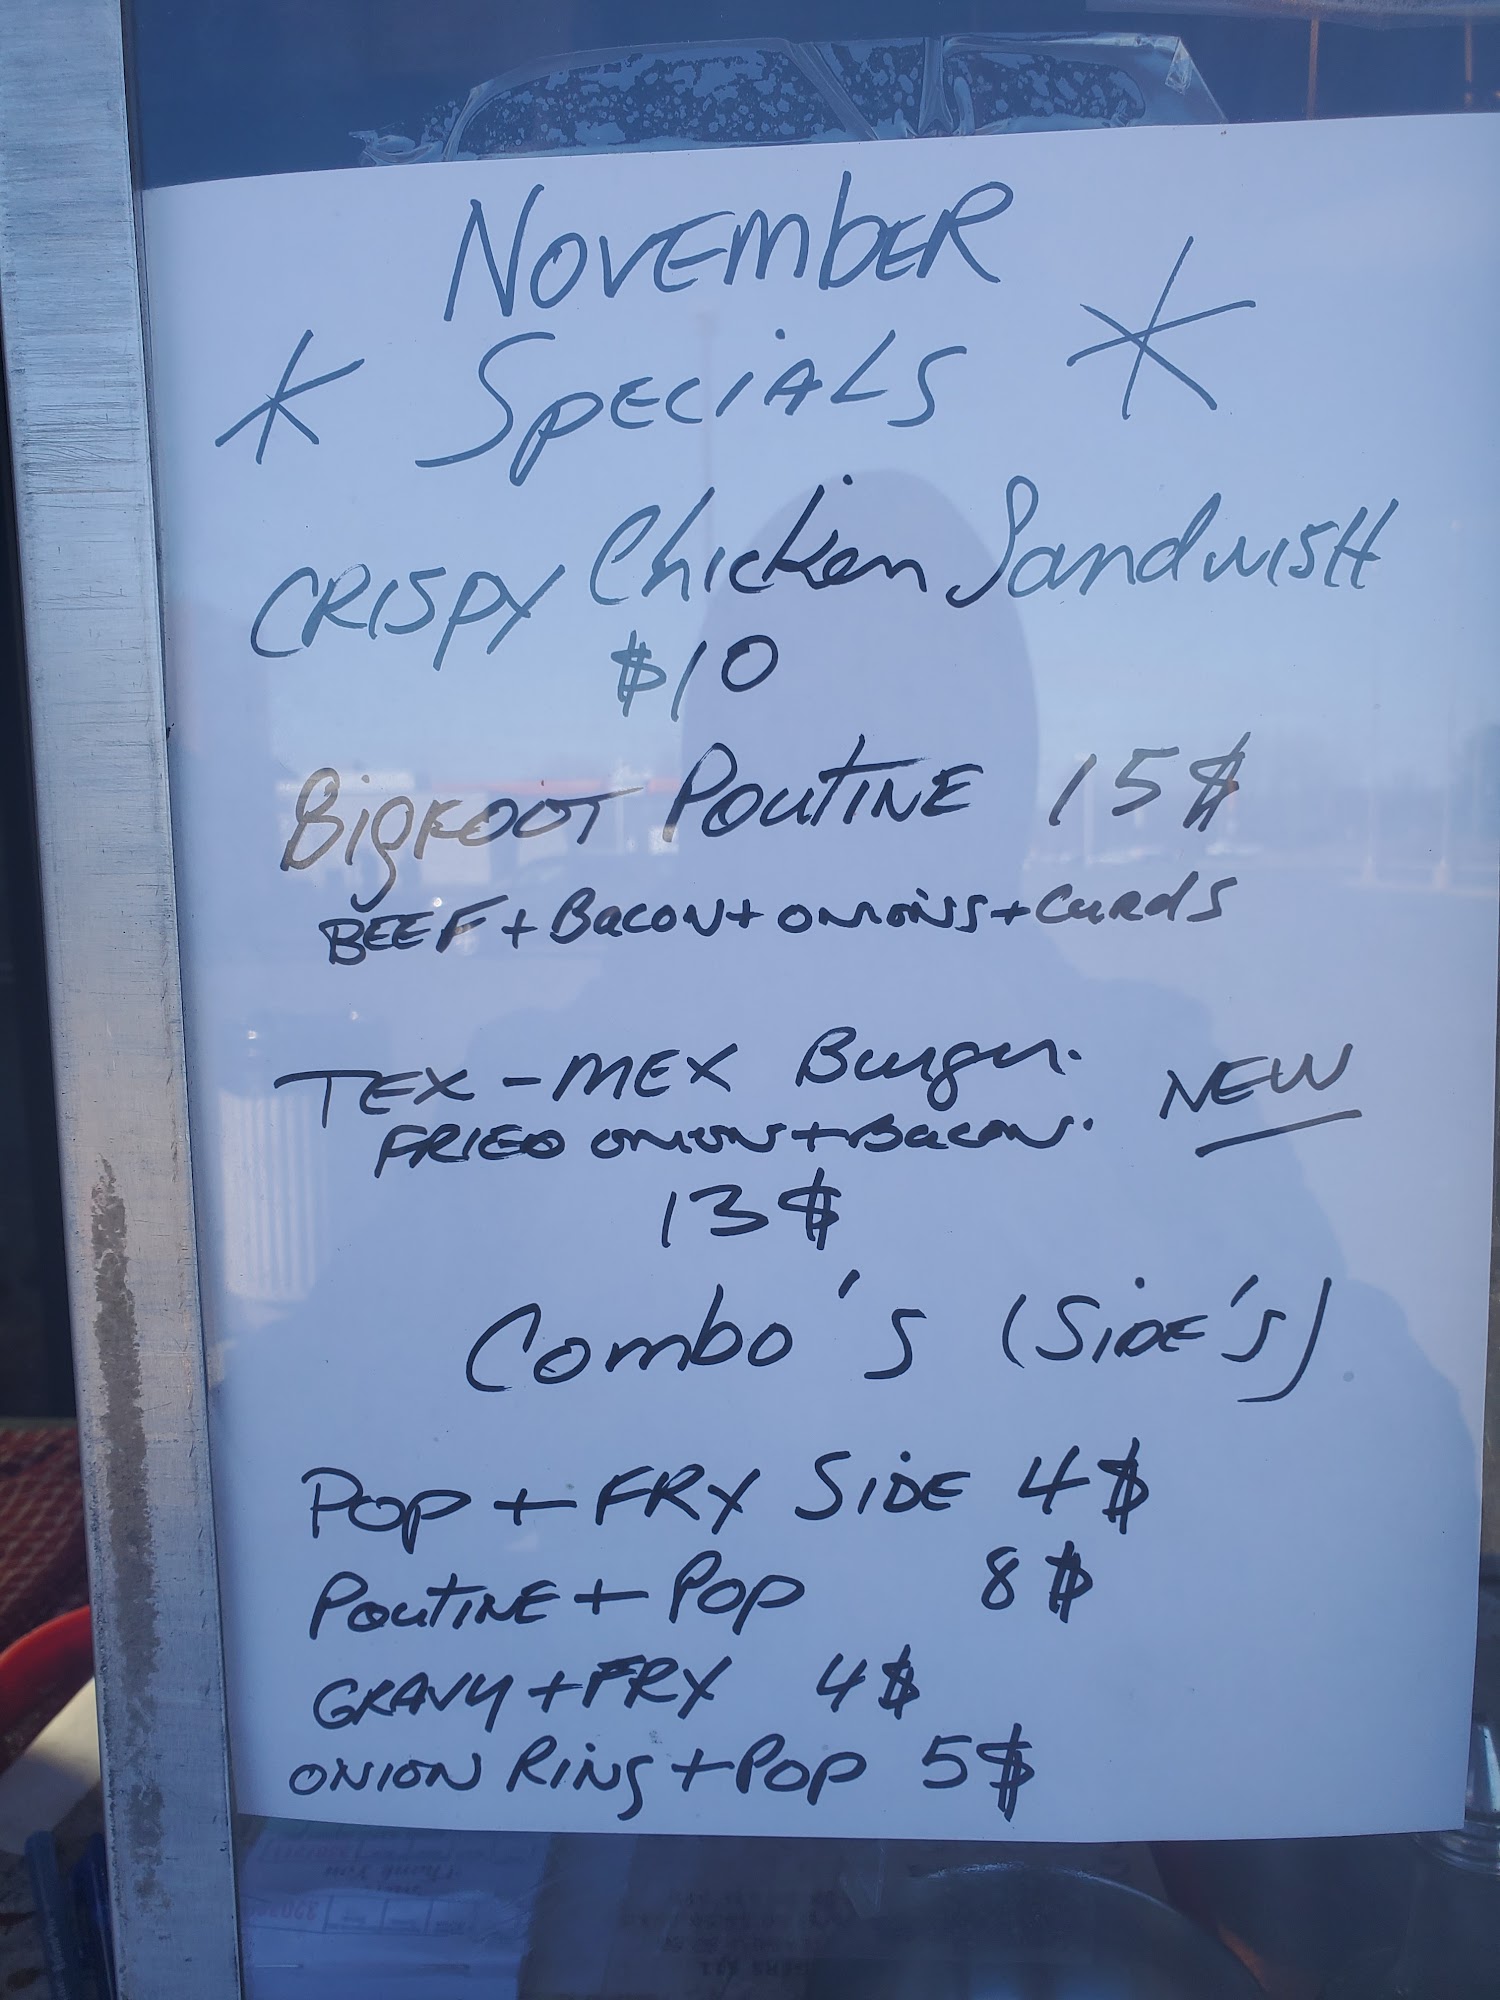 NOVEMbER
* SPECIALS *
CRISPY Chicken SandwISH
$10
BigFOOT POUTINE 15$
BEEF + BACON + ONIONS + CURdS
TEX-MEX Burger. NEW
FRIED ONIONS + BACON.
13$
Combo's (SiDE's)
POP + FRY SIDE 4$
POUTINE + POP 8$
GRAVY + FRY 4$
ONION RING + POP 5$